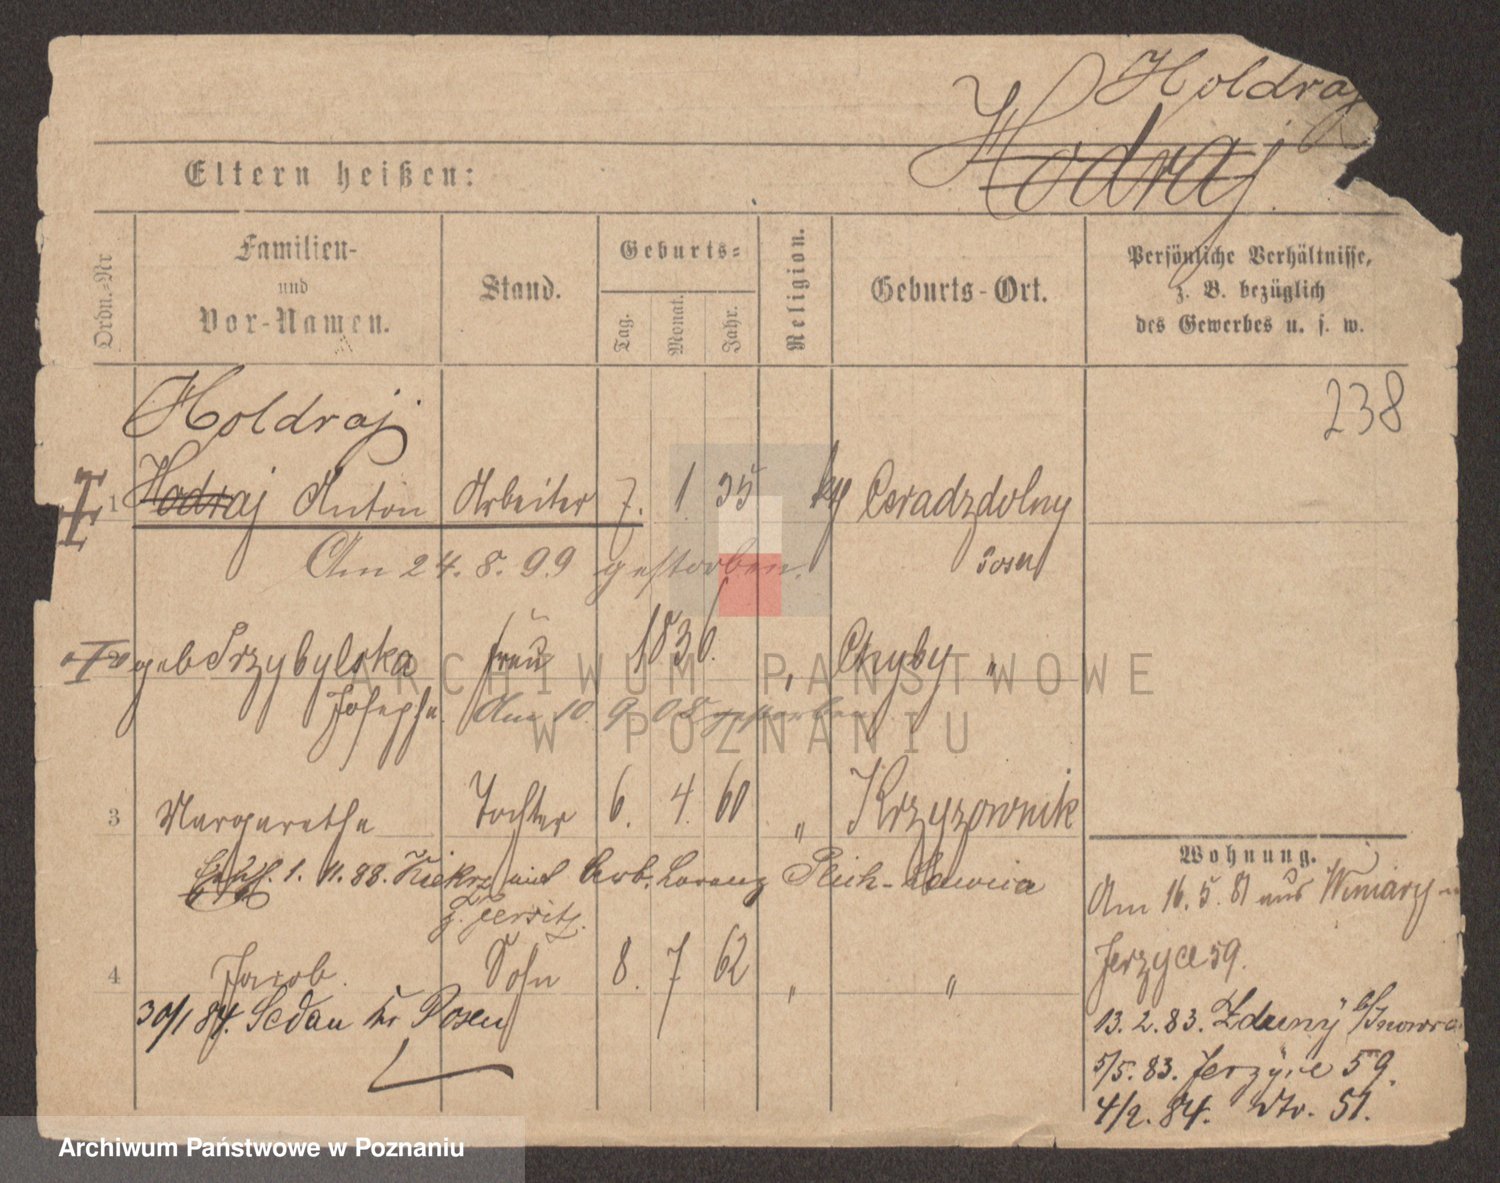 Holdraj
Hodraj
Eltern heißen:
Ordn.-Nr
Familien-
und
Vor-Namen.
Stand.
Geburts-
Tag.
Monat.
Jahr.
Religion.
Geburts-Ort.
Persönliche Verhältnisse,
z. B. bezüglich
des Gewerbes u. s. w.
238
Holdraj
1 Hodraj Anton Arbeiter 7. 1 35 Ceradzdolny
Am 24. 8. 99 gestorben. Posen
geb Przybylska Frau 1836. " Chyby "
Josepha. Am 10. 9. 08 gestorben
3 Margaretha Tochter 6. 4. 60 " Krzyzownik
1. 11. 88. Kiekrz mit Arb. Lorenz Lawica
z. Jersitz.
4 Jacob. Sohn 8. 7 62 " "
30/1 84. Sedan Kr Posen
Wohnung.
Am 16. 5. 81 aus Winiary
Jerzyce 59.
13. 2. 83. Zduny
5/5. 83. Jerzyce 59.
4/2. 84. dto. 51.
ARCHIWUM PAŃSTWOWE
W POZNANIU
Archiwum Państwowe w Poznaniu